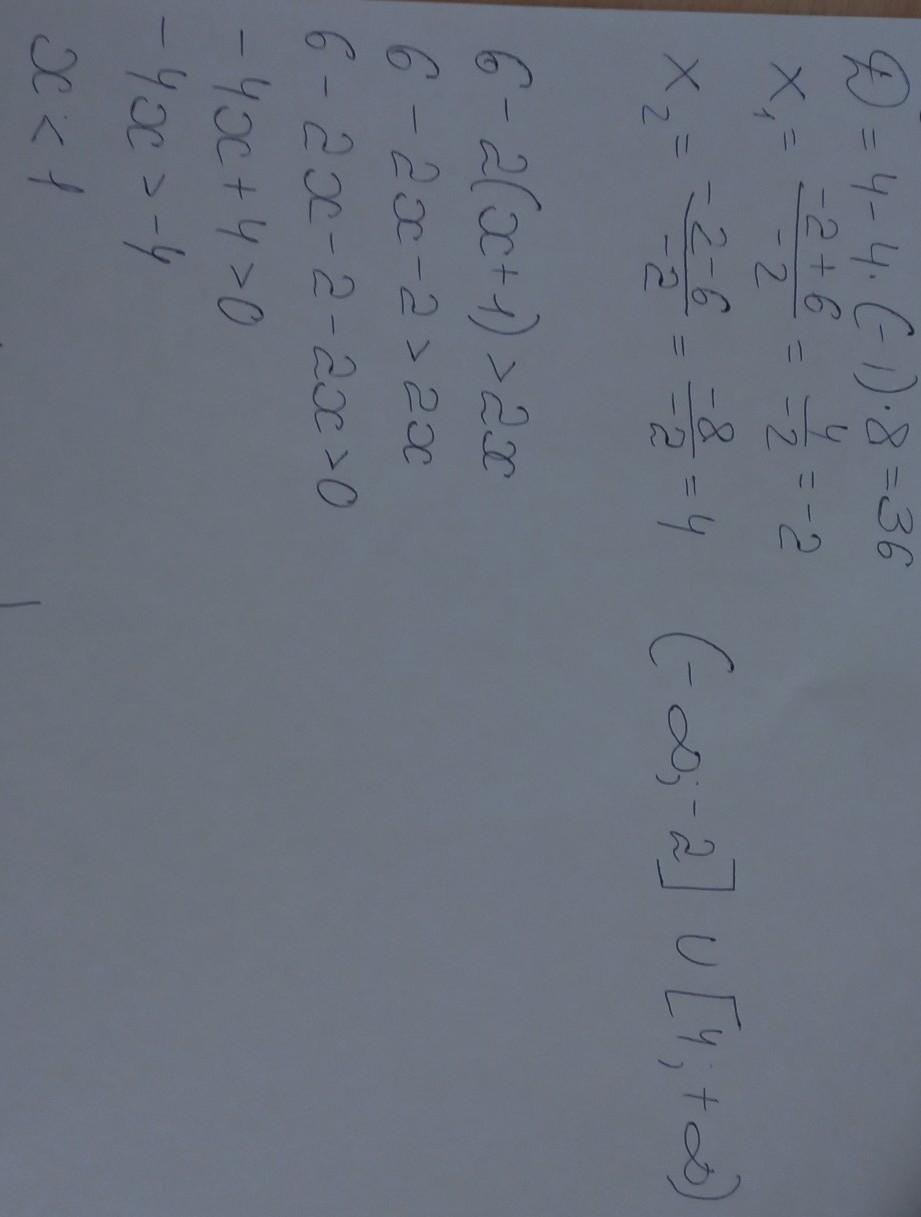 D = 4 - 4 · (-1) · 8 = 36
x₁ = (-2 + 6)/-2 = 4/-2 = -2
x₂ = (-2 - 6)/-2 = -8/-2 = 4 (-∞; -2] ∪ [4; +∞)
6 - 2(x + 1) > 2x
6 - 2x - 2 > 2x
6 - 2x - 2 - 2x > 0
- 4x + 4 > 0
- 4x > -4
x < 1